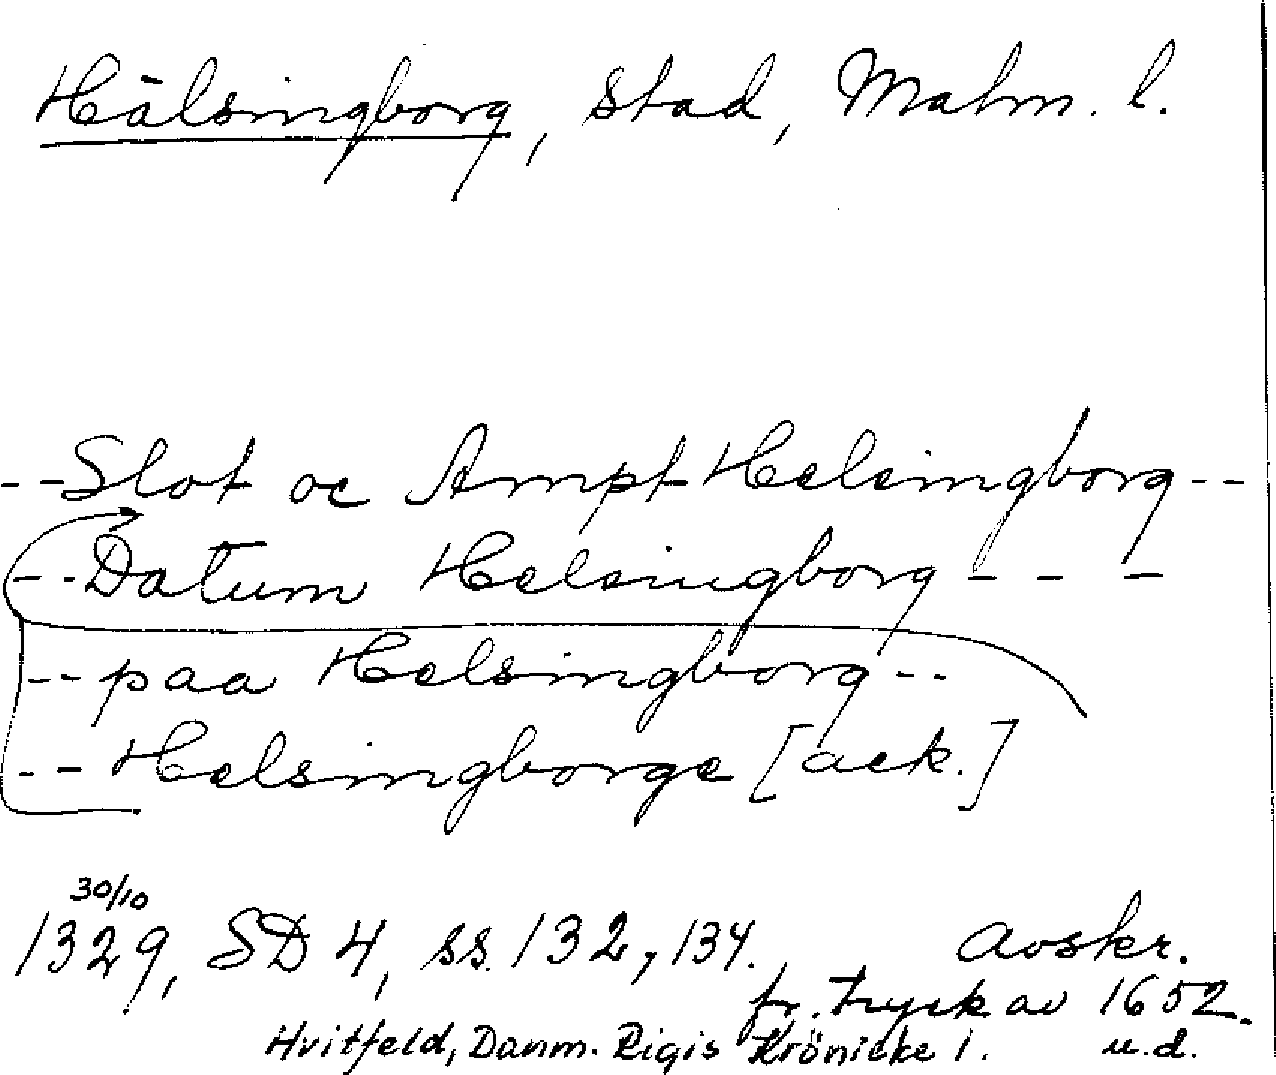 Hälsingborg, stad, Malm. l.
--Slot oc Ampt Helsingborg--
--Datum Helsingborg - - -
--paa Helsingborg--
--Helsingborge [ack.]
30/10
1329, SD 4, ss. 132, 134. Avskr.
fr. tryck av 1652.
Hvitfeld, Danm. Rigis Krönicke 1. u.d.